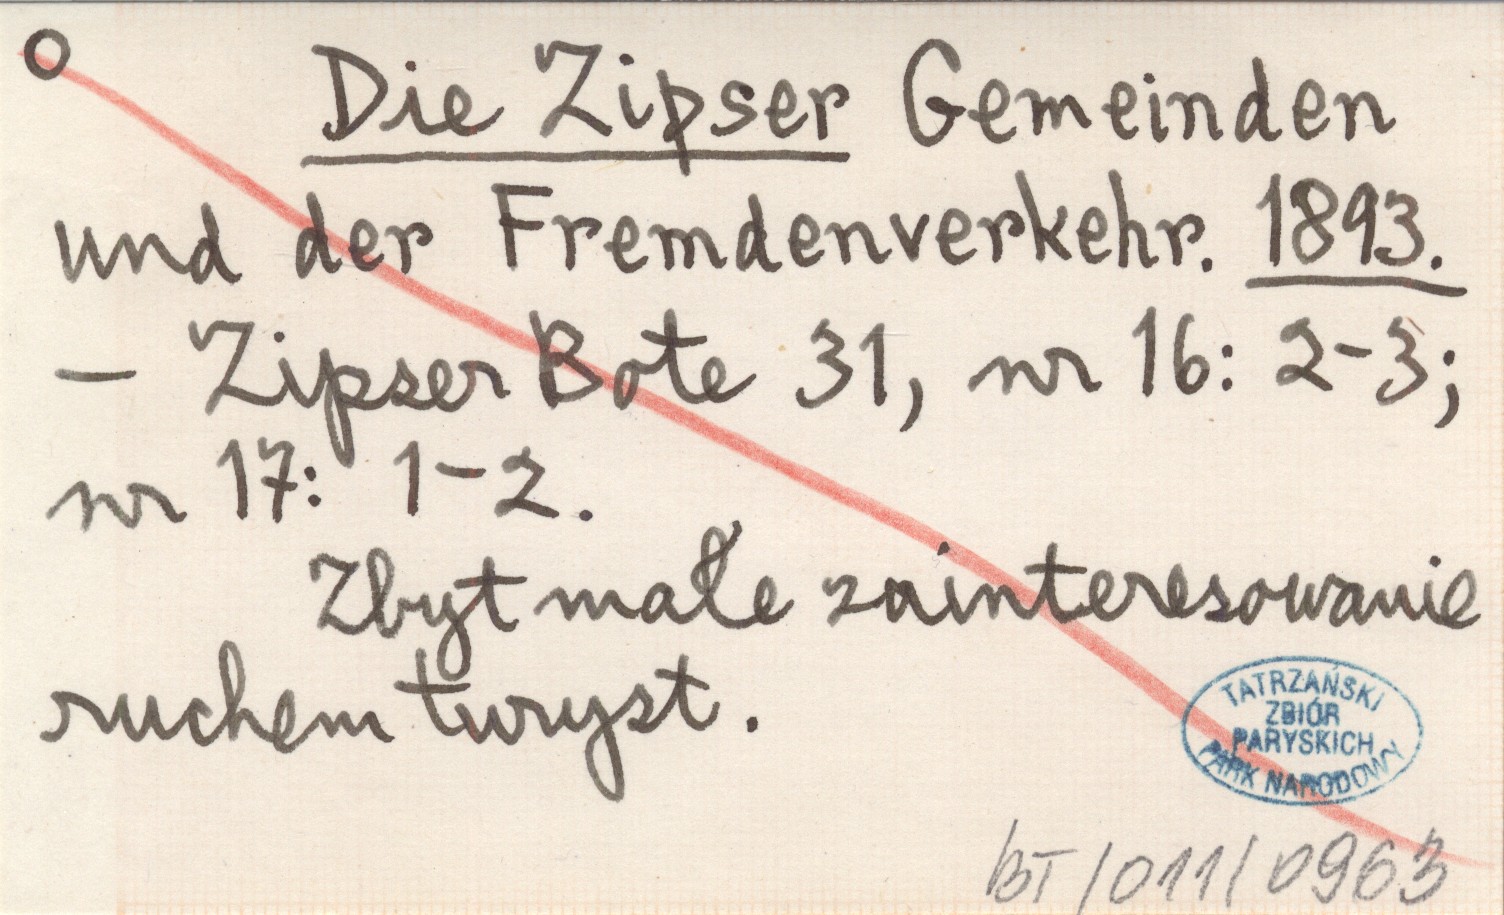 O Die Zipser Gemeinden
und der Fremdenverkehr. 1893.
– Zipser Bote 31, nr 16: 2-3;
nr 17: 1-2.
Zbyt małe zainteresowanie
ruchem turyst.
TATRZAŃSKI
ZBIÓR
PARYSKICH
PARK NARODOWY
BT/011/0963